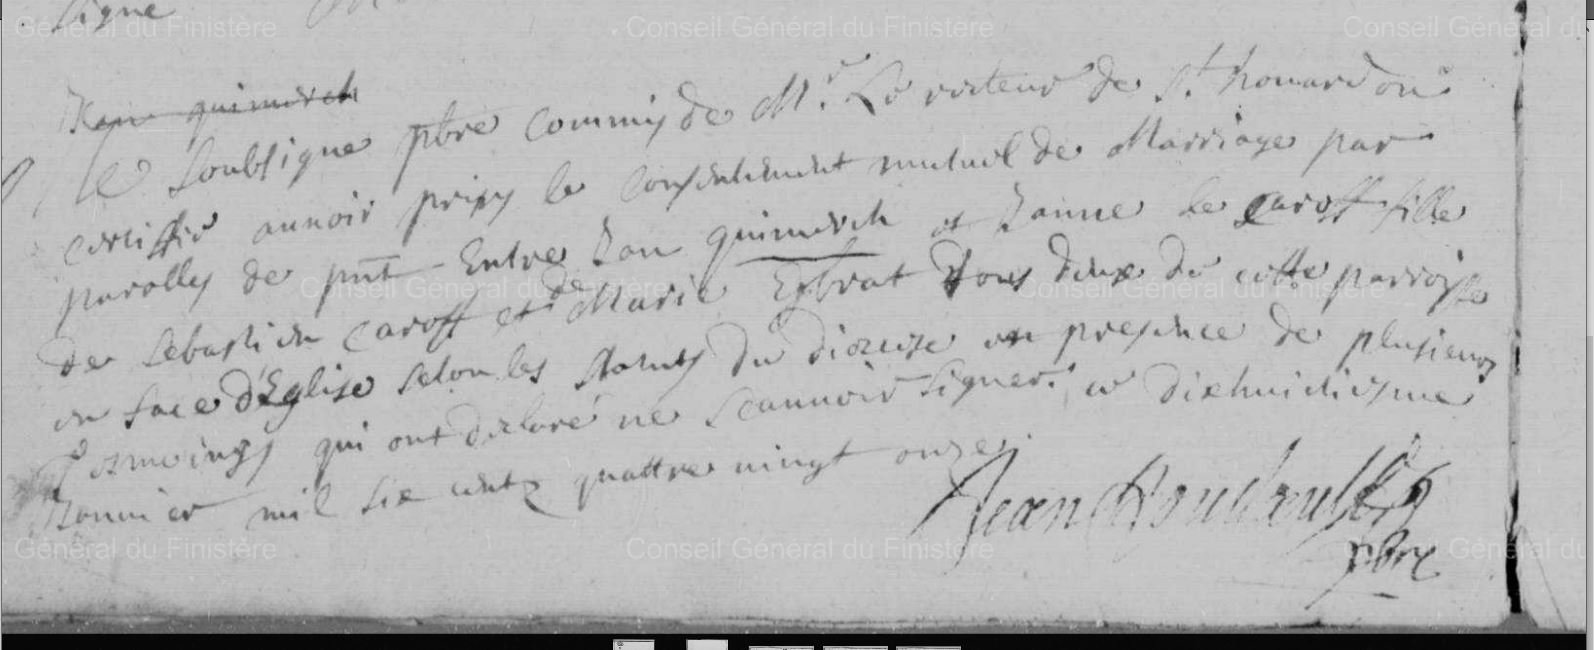 signe
Jan quimerch
le Soubsigné pbre Commis de Mr. Le recteur de St. houardon
certiffie auuoir prins le Consentement mutuel de Marriage par
parolles de pnt Entre Jan quimerch et Janne le caroff fille
de Sebastien caroff et de Marie tous deux de cette parroisse
en face d'Eglise selon les statuts du dioceise en presence de plusieurs
tesmoings qui ont declaré ne scauuoir signer ce dixhuictiesme
Januier mil six cents quattre vingt onze.
Jean
pbre
Conseil Général du Finistère
Conseil Général du Finistère
Conseil Général du
Conseil Général du Finistère
Conseil Général du Finistère
Conseil Général du Finistère
Conseil Général du Finistère
Général du